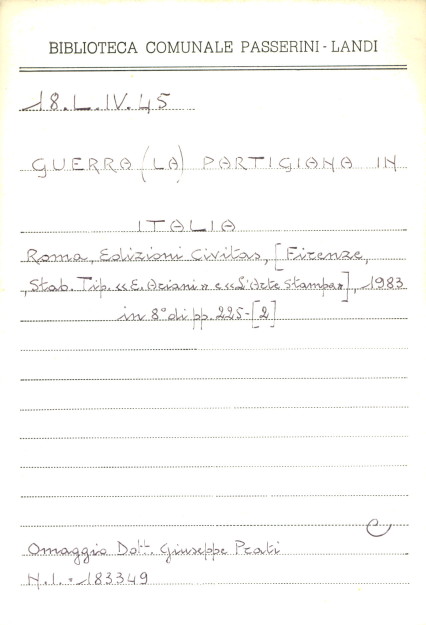 BIBLIOTECA COMUNALE PASSERINI - LANDI
18.L.IV.45
GUERRA (LA) PARTIGIANA IN
ITALIA
Roma, Edizioni Civitas, [Firenze,
Stab. Tip. «E. Ariani» e «L'Arte Stampa»], 1983
in 8° di pp. 225-[2]
C
Omaggio Dott. Giuseppe Prati
N.I. = 183349